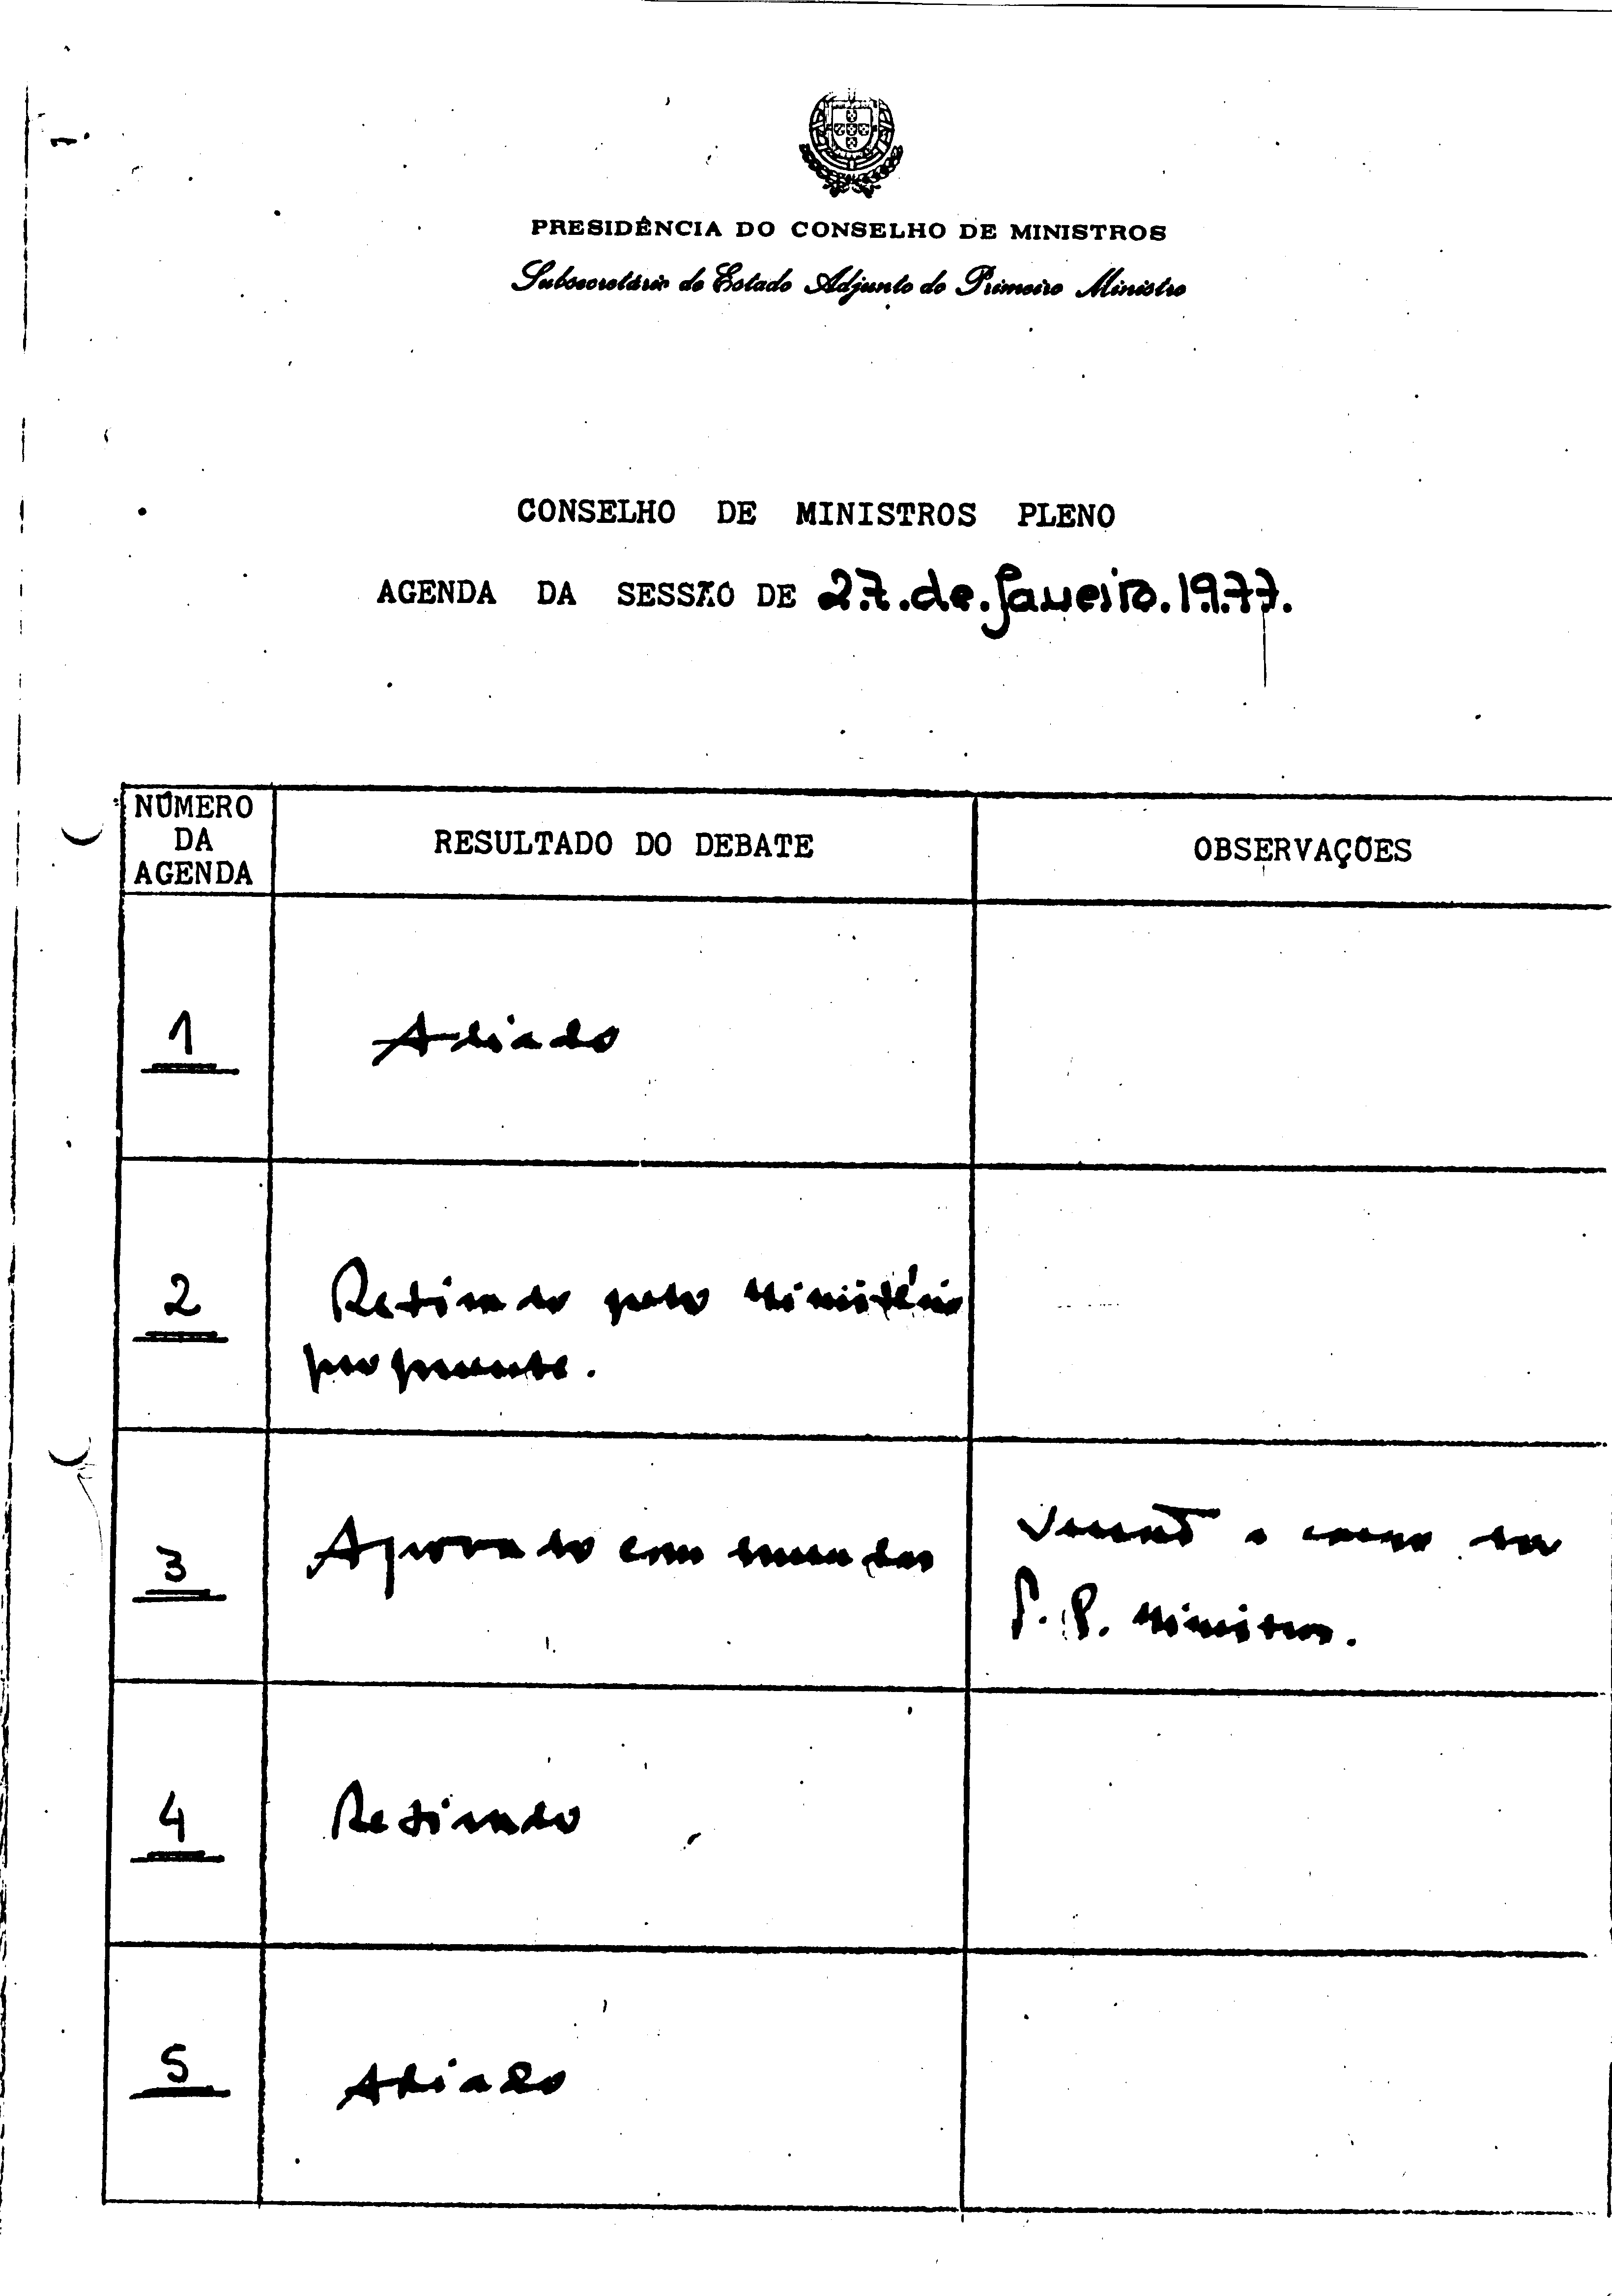 PRESIDÊNCIA DO CONSELHO DE MINISTROS
Subsecretário de Estado Adjunto do Primeiro Ministro
CONSELHO DE MINISTROS PLENO
AGENDA DA SESSÃO DE 27.de.Janeiro.1977.
NÚMERO
DA
AGENDA
RESULTADO DO DEBATE
OBSERVAÇÕES
1
Adiado
2
Retirado pelo Ministério
proponente.
3
Aprovado com emendas
a cargo da
P. P. Ministros.
4
Retirado
5
Adiado